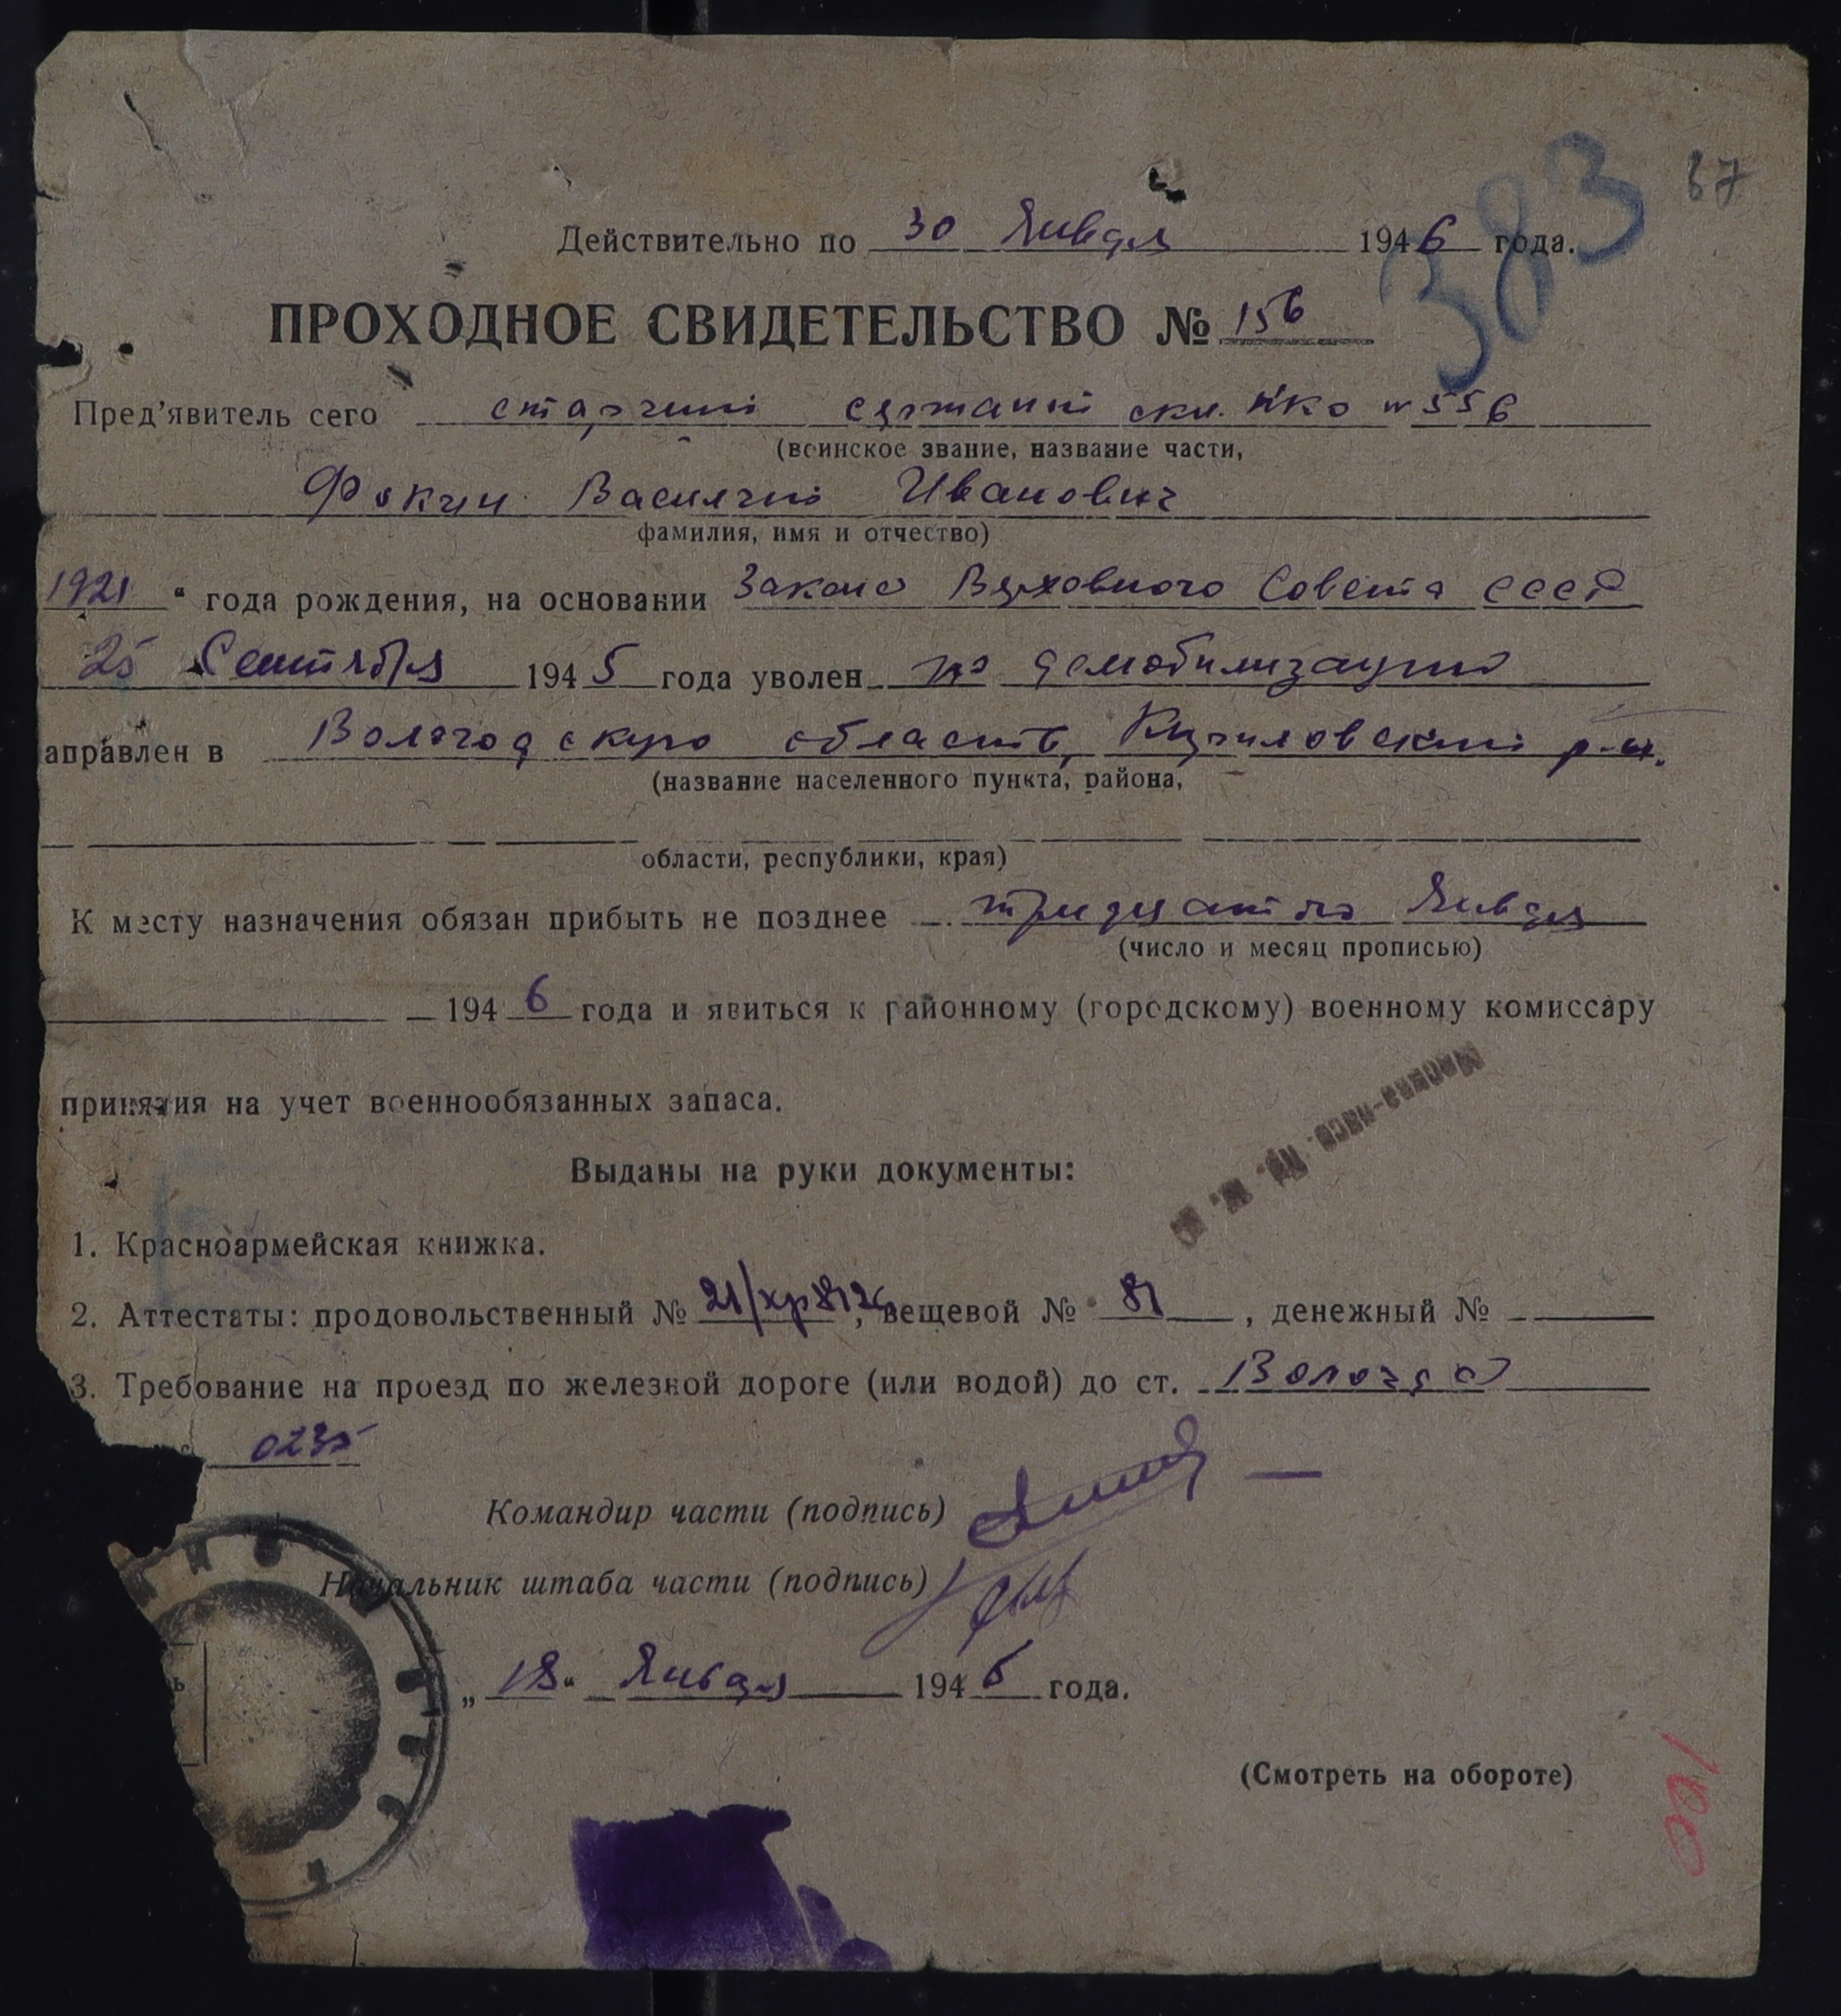 383 87
Действительно по 30 Января 1946 года.
ПРОХОДНОЕ СВИДЕТЕЛЬСТВО № 156
Пред'явитель сего старший сержант скл. НКО № 556
(воинское звание, название части,
Фокин Василий Иванович
фамилия, имя и отчество)
1921 " года рождения, на основании Закона Верховного Совета СССР
25 Сентября 1945 года уволен по демобилизации
аправлен в Вологодскую область, Кирилловский р-н.
(название населенного пункта, района,
области, республики, края)
К месту назначения обязан прибыть не позднее тридцатого Января
(число и месяц прописью)
1946 года и явиться к районному (городскому) военному комиссару
принятия на учет военнообязанных запаса.
Москва-пасс. Яр. ж. д.
Выданы на руки документы:
1. Красноармейская книжка.
2. Аттестаты: продовольственный № 21/хр8126, вещевой № 81, денежный № —
3. Требование на проезд по железной дороге (или водой) до ст. Вологда
0235
Командир части (подпись)
Начальник штаба части (подпись)
„18" Января 1946 года.
(Смотреть на обороте)